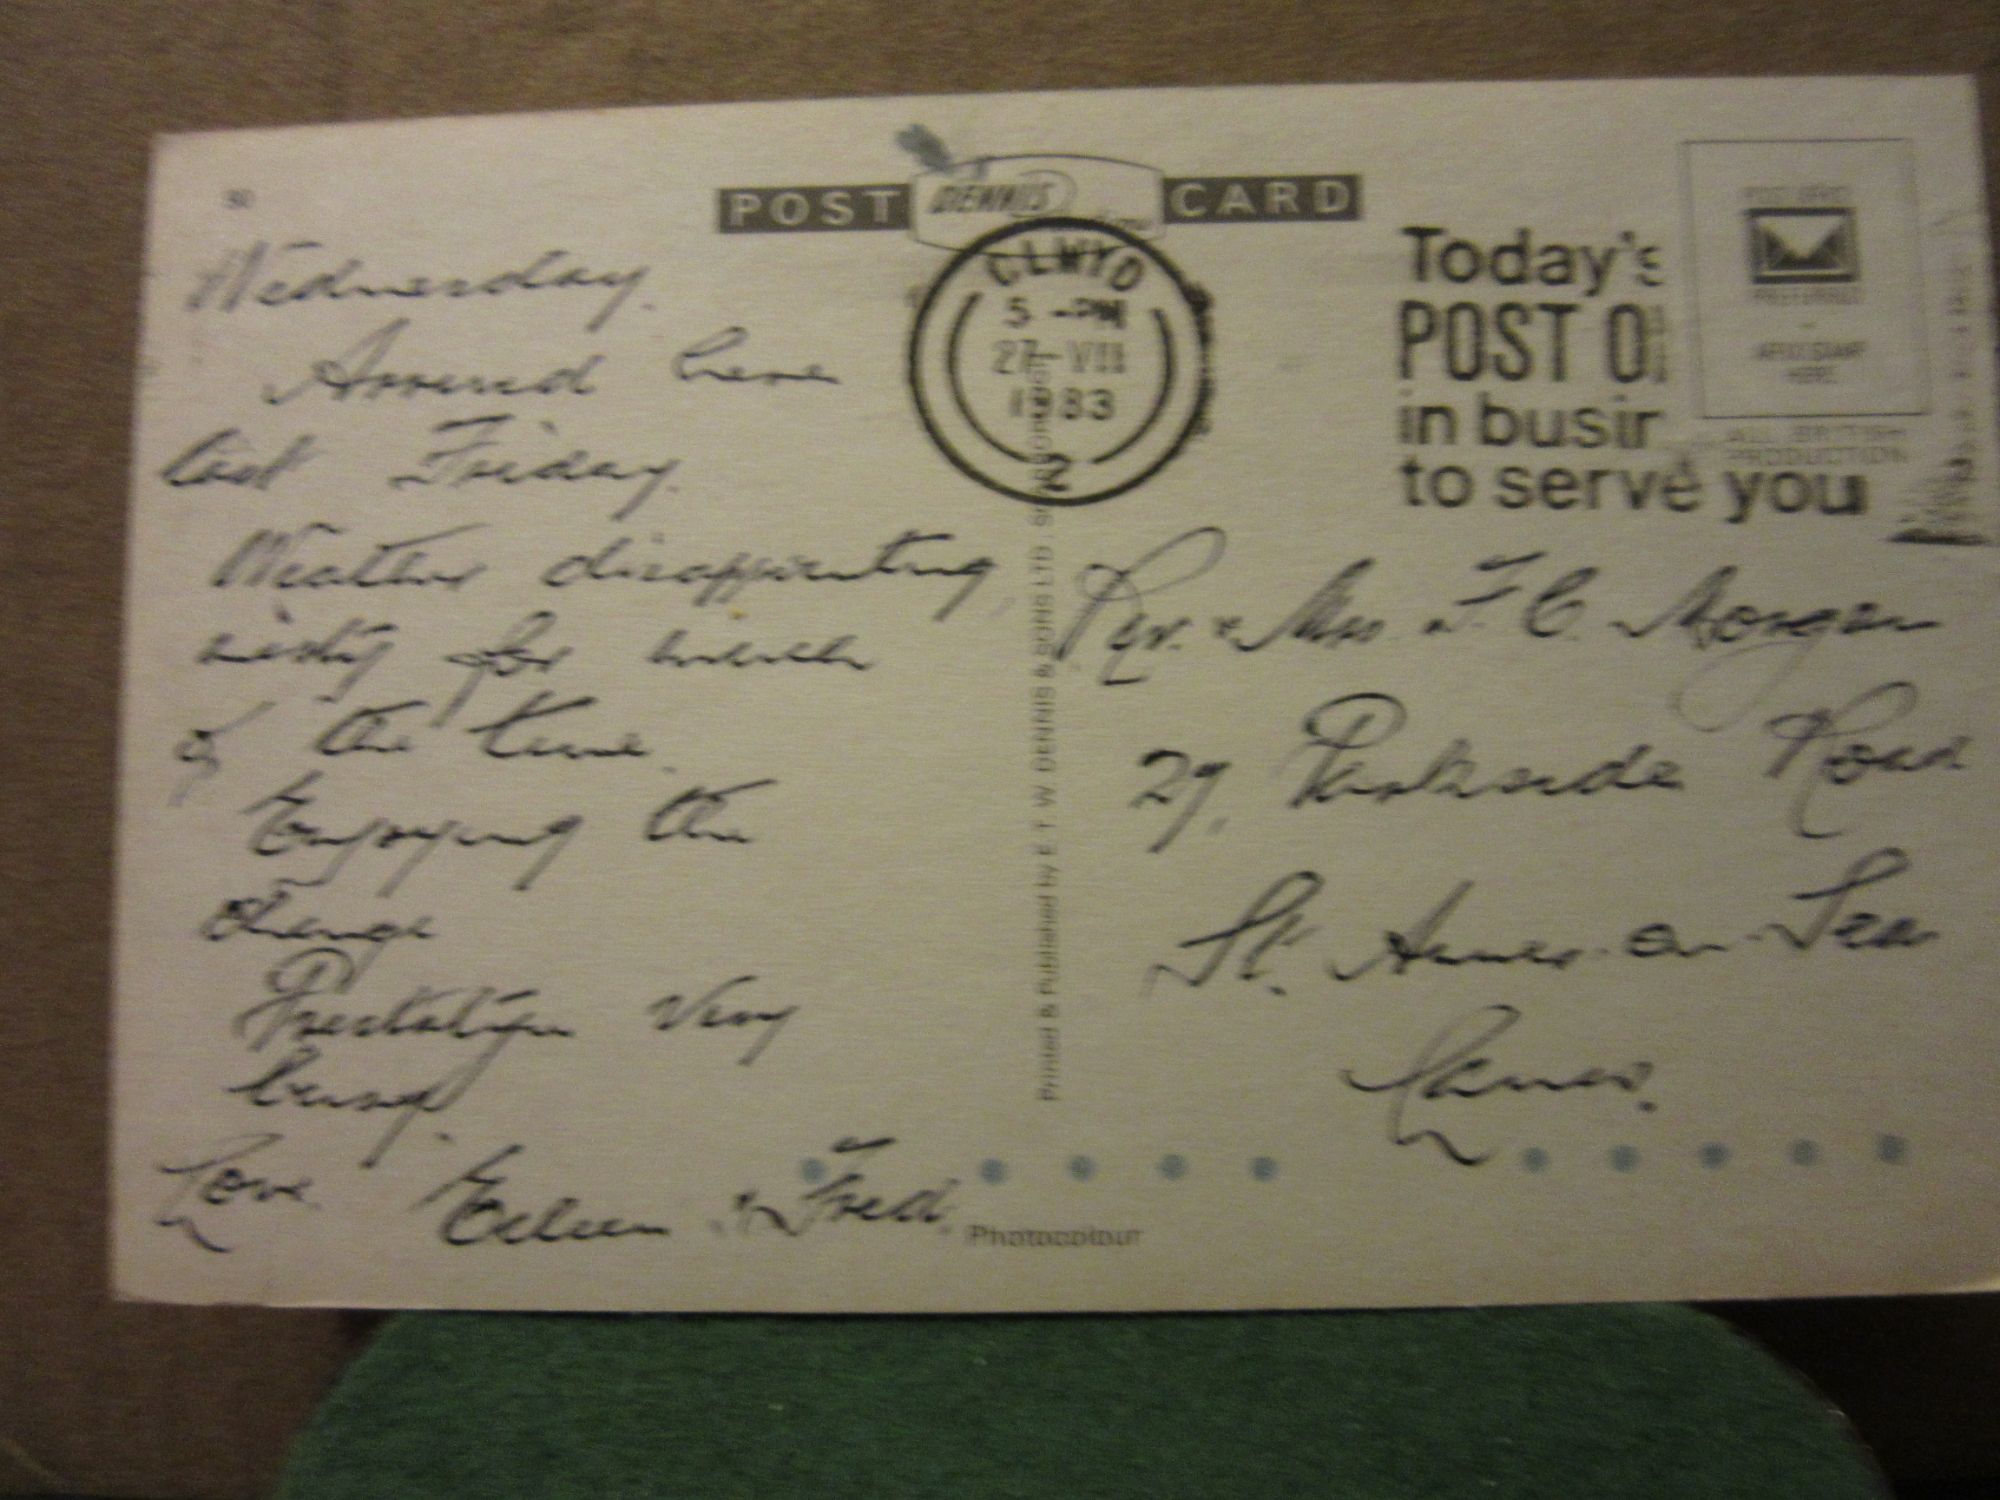 80
POST DENNIS CARD
CLWYD
5 - PM
27 - VII
1983
2
Today's
POST O
in busin
to serve you
PREFERRED
AFFIX STAMP
HERE
ALL BRITISH
PRODUCTION
Wednesday.
Arrived here
last Friday.
Weather disappointing,
misty for much
of the time.
Enjoying the
change
Prestatyn very
busy.
Love Eileen & Fred.
Rev. & Mrs. F. C. Morgan
29, Parkside Road
St. Annes-on-Sea
Lancs.
Printed & Published by E. T. W. DENNIS & SONS LTD.
Photocolour